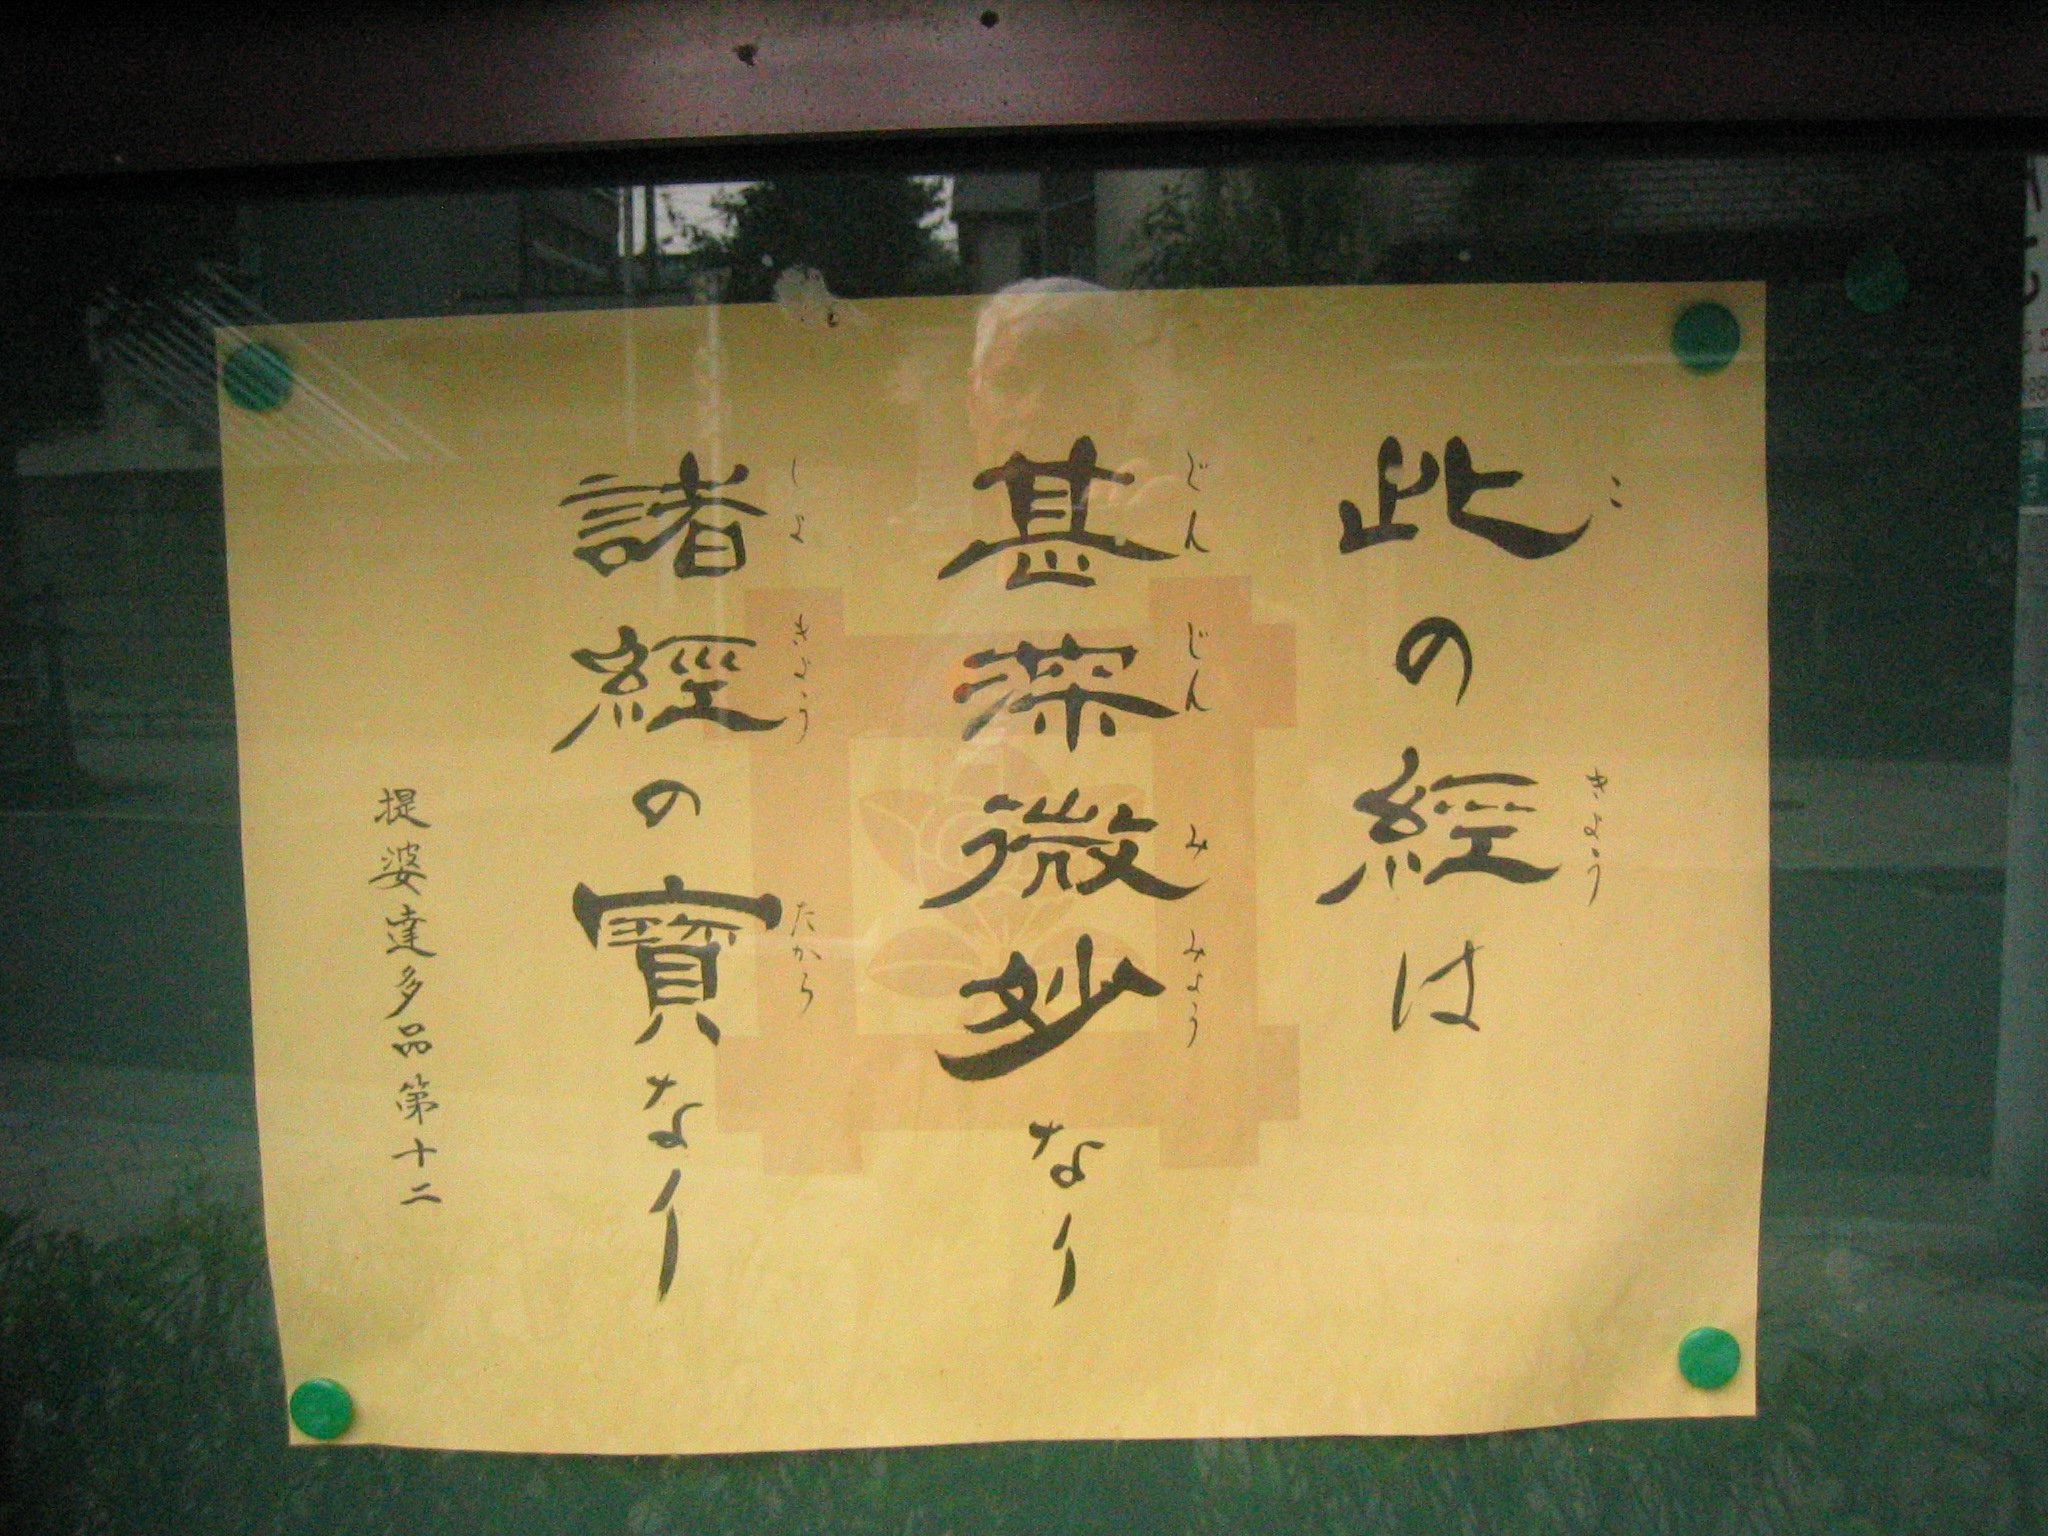 此の經は
こ
きょう
甚深微妙なり
じんじんみみょう
諸經の寶なり
しょきょうたから
提婆達多品第十二